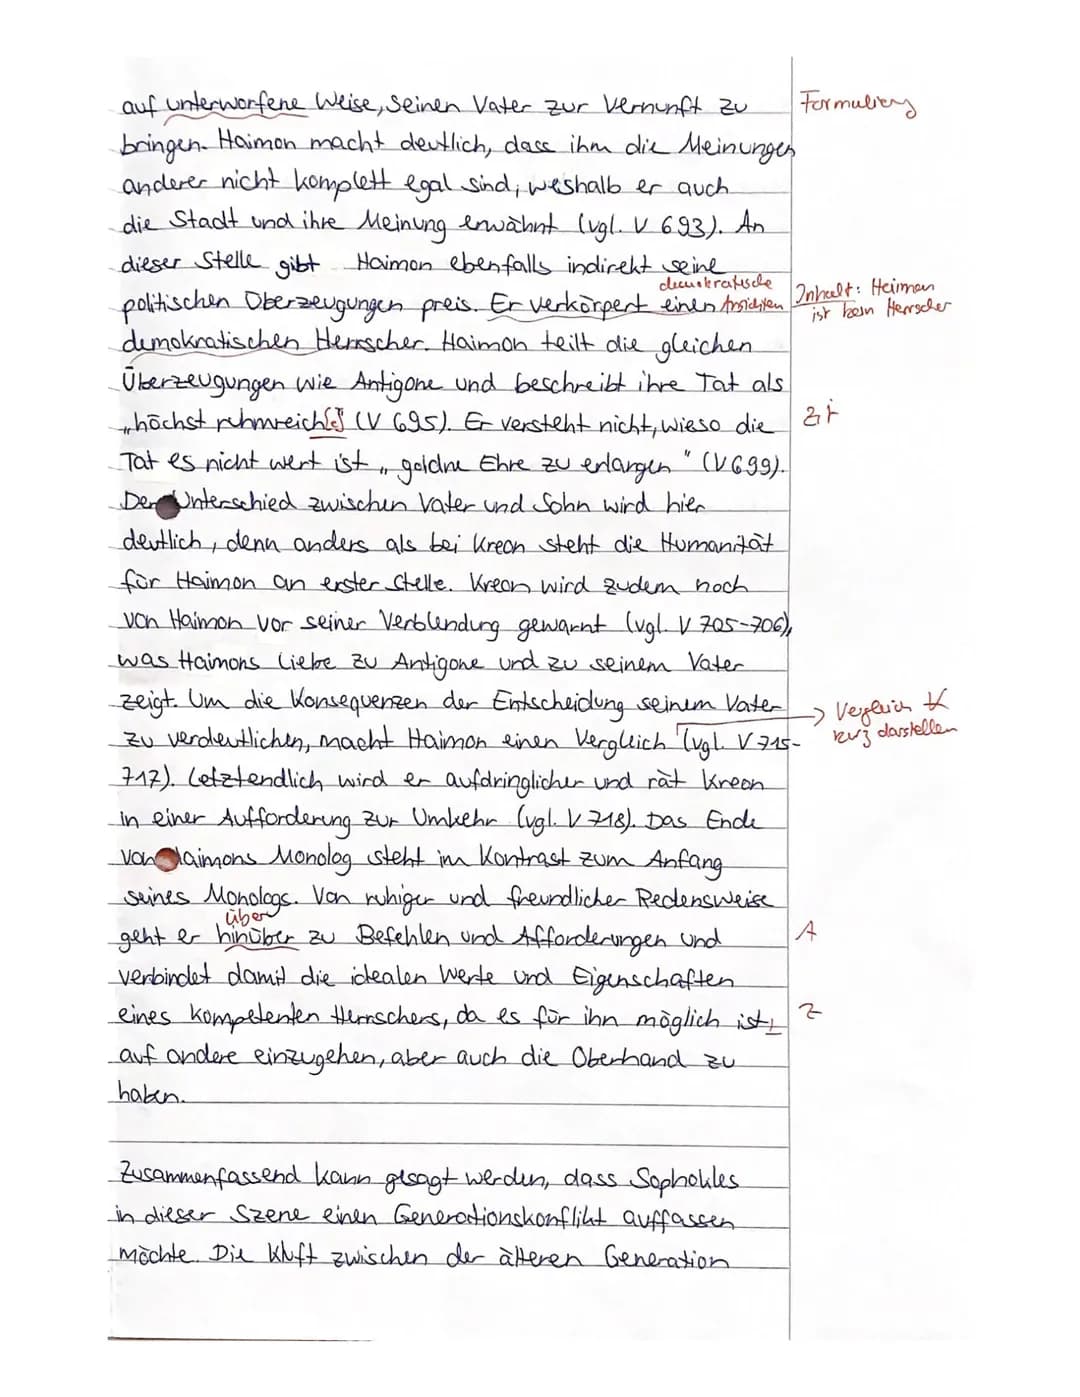 auf unterworfene Weise, seinen Vater zur Vernunft zu
Formulierg
bringen. Haimon macht deutlich, dass ihm die Meinungen
anderer nicht komplett egal sind, weshalb er auch
die Stadt und ihre Meinung erwähnt (vgl. V 693). An
dieser Stelle gibt Haimon ebenfalls indirekt seine
demokratische
politischen Überzeugungen preis. Er verkörpert einen Ansichten
Inhalt: Heimon
ist kein Herrscher
demokratischen Herrscher. Haimon teilt die gleichen
Überzeugungen wie Antigone und beschreibt ihre Tat als
„höchst ruhmreich[e]" (V 695). Er versteht nicht, wieso die
Zit
Tat es nicht wert ist „goldne Ehre zu erlangen" (V 699).
Der Unterschied zwischen Vater und Sohn wird hier
deutlich, denn anders als bei Kreon steht die Humanität
für Haimon an erster Stelle. Kreon wird zudem noch
von Haimon vor seiner Verblendung gewarnt (vgl. V 705-706),
was Haimons Liebe zu Antigone und zu seinem Vater
zeigt. Um die Konsequenzen der Entscheidung seinem Vater
→ Vergleich
kurz darstellen
zu verdeutlichen, macht Haimon einen Vergleich (vgl. V 715-
717). Letztendlich wird er aufdringlicher und rät Kreon
in einer Aufforderung zur Umkehr (vgl. V 718). Das Ende
von Haimons Monolog steht im Kontrast zum Anfang
seines Monologs. Von ruhiger und freundlicher Redensweise
über
geht er hinüber zu Befehlen und Afforderungen und
A
verbindet damit die idealen Werte und Eigenschaften
eines kompetenten Herrschers, da es für ihn möglich ist,
Z
auf andere einzugehen, aber auch die Oberhand zu
haben.
Zusammenfassend kann gesagt werden, dass Sophokles
in dieser Szene einen Generationskonflikt auffassen
möchte. Die Kluft zwischen der älteren Generation